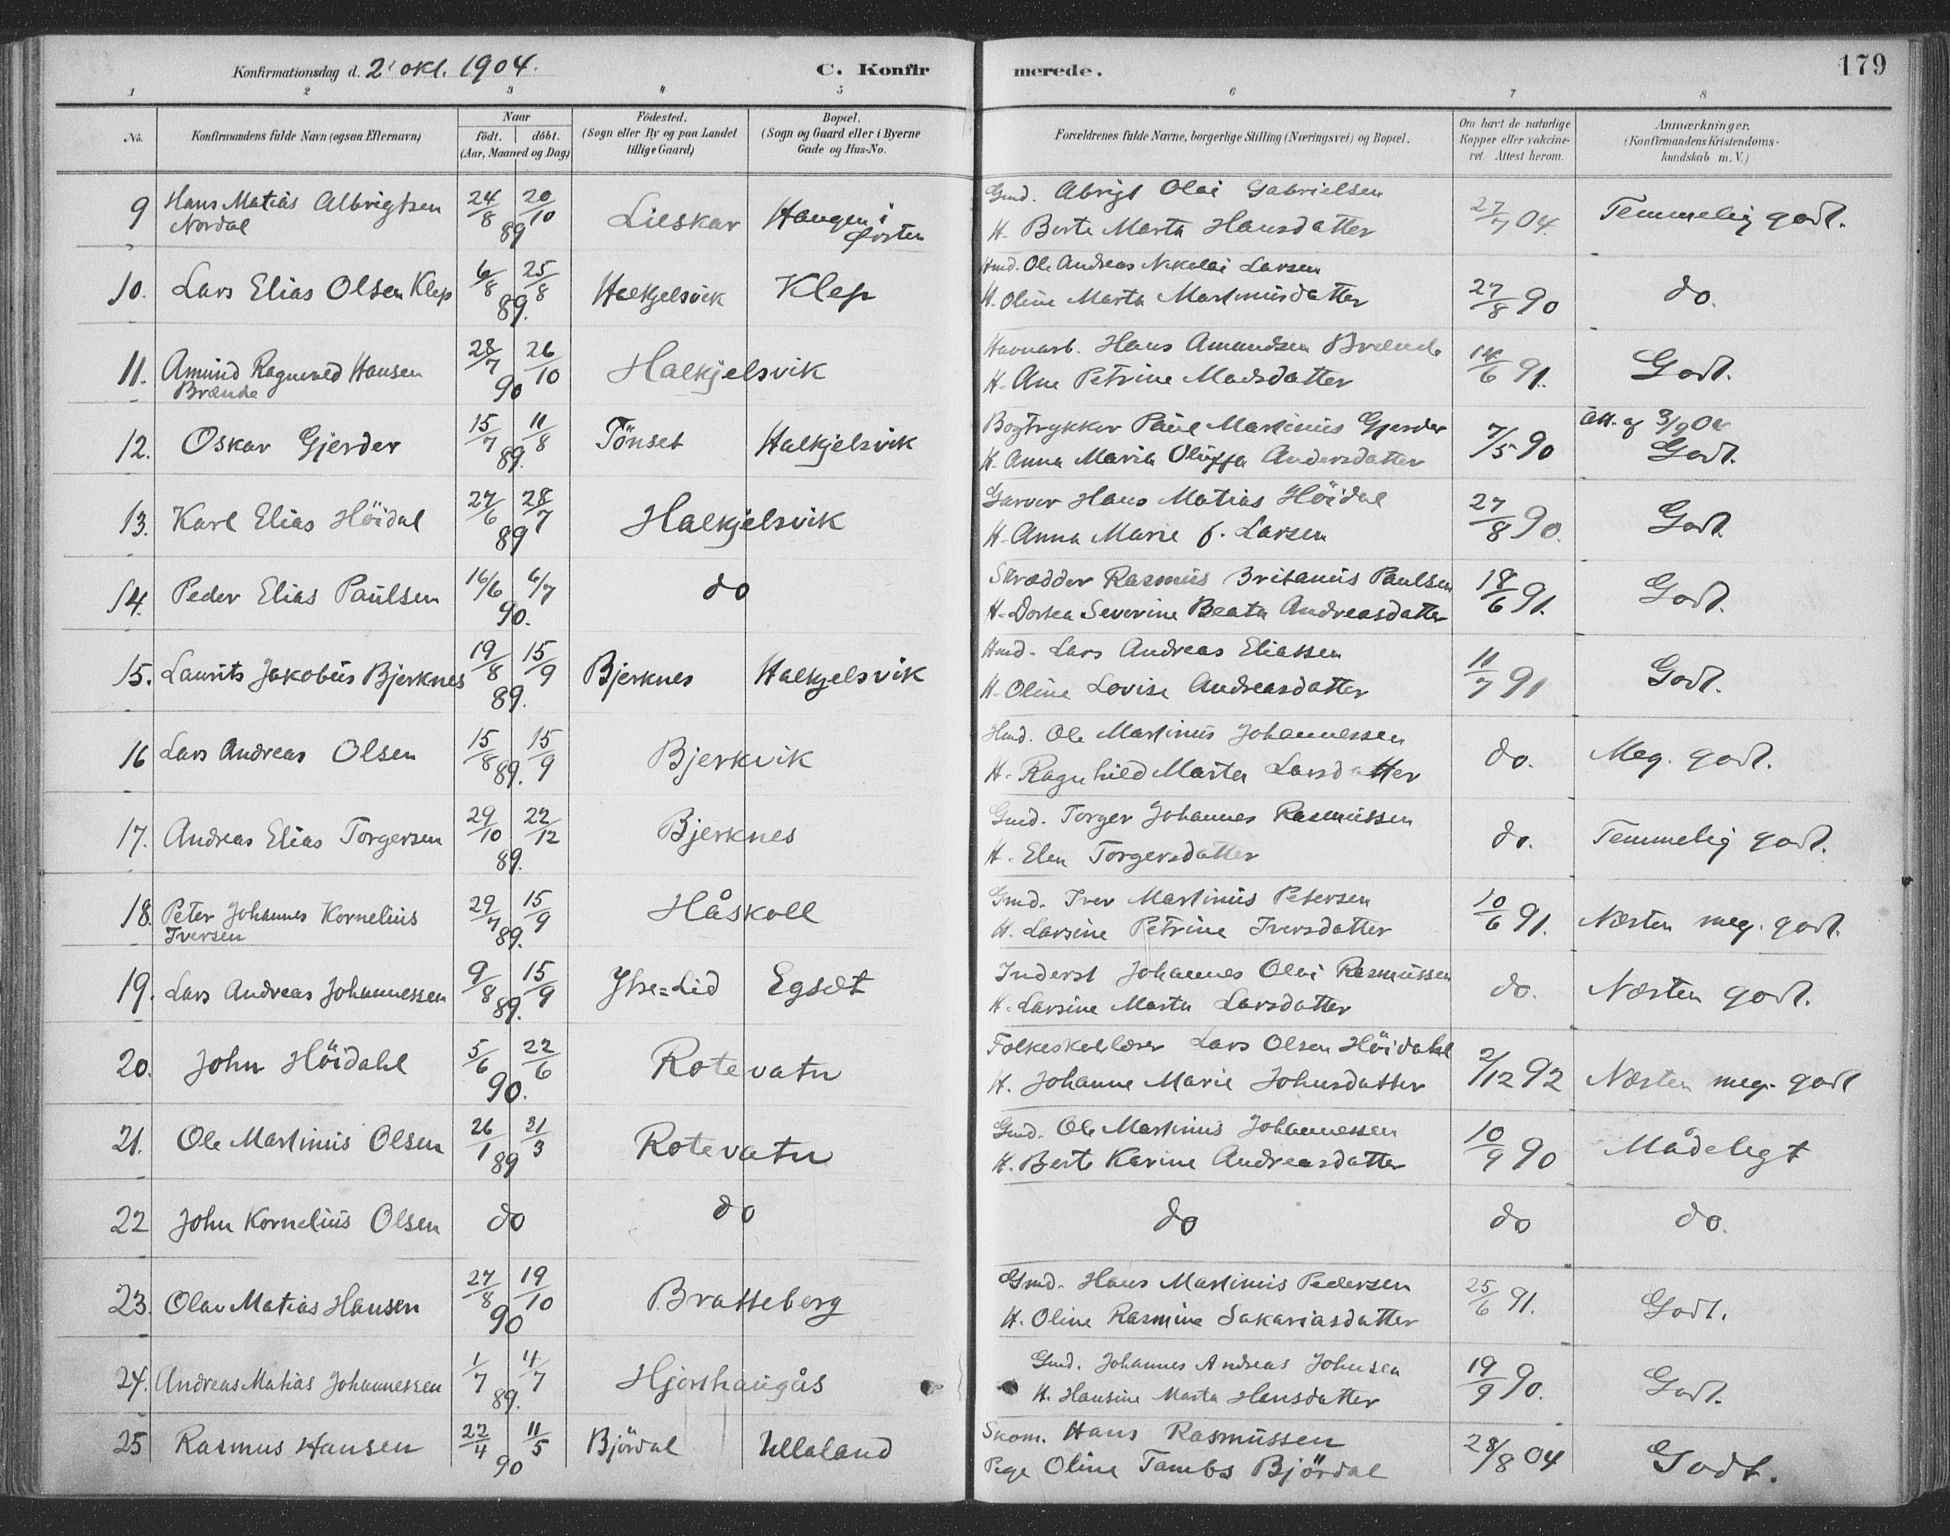 Konfirmationsdag d. 2' okt. 1904.
C. Konfirmerede.
179
1 2 3 4 5 6 7 8
No.
Konfirmandens fulde Navn (ogsaa Efternavn)
Naar
født. døbt.
(Aar, Maaned og Dag)
Fødested.
(Sogn eller By og paa Landet
tillige Gaard)
Bopæl.
(Sogn og Gaard eller i Byerne
Gade og Hus-No.
Forældrenes fulde Navne, borgerlige Stilling (Næringsvei) og Bopæl.
Om havt de naturlige
Kopper eller vakcine-
ret. Attest herom.
Anmærkninger.
(Konfirmandens Kristendoms-
kundskab m. V.)
9 Hans Matias Albrigtsen 24/8 20/10 Lieskar Haugen i Gmd. Abrigt Olai Gabrielsen 27/7 04 Temmelig godt.
Nordal 89 Ørsten H. Berte Marta Hansdatter
10. Lars Elias Olsen Klep 6/8 25/8 Halkjelsvik Klep Hmd. Ole Andreas Nikolai Larsen 27/8 90 do.
89. H. Oline Marta Martinusdatter
11. Amund Ragnvald Hansen 28/7 26/10 Halkjelsvik Havnarb. Hans Amundsen Brænde 14/6 91. Godt.
Brænde 90 H. Ane Petrine Madsdatter
12. Oskar Gjerder 15/7 11/8 Tönset Halkjelsvik Bogtrykker Paul Martinus Gjerder 7/5 90 Att. af 3/9 04
89. H. Anna Maria Oluffa Andersdatter Godt.
13. Karl Elias Höidal 27/6 28/7 Halkjelsvik Garver Hans Matias Höidal 27/8 90. Godt
89 H. Anna Marie f. Larsen
14. Peder Elias Paulsen 16/6 6/7 do Skrædder Rasmus Britanus Paulsen 18/6 91. Godt.
90. H. Dortea Severine Beata Andreasdatter
15. Laurits Jakobus Bjerknes 19/8 15/9 Bjerknes Halkjelsvik Hmd. Lars Andreas Eliassen 11/7 91 Godt.
89. H. Oline Lovise Andreasdatter
16 Lars Andreas Olsen 15/8 15/9 Bjerkvik Hmd. Ole Martinus Johannessen do. Meg. godt.
89. H. Ragnhild Marta Larsdatter
17. Andreas Elias Torgersen 29/10 22/12 Bjerknes Gmd. Torger Johannes Rasmussen do. Temmelig godt.
89. H. Elen Torgersdatter
18. Peter Johannes Kornelius 29/7 15/9 Håskoll Gmd. Iver Martinus Petersen 10/6 91. Næsten meg. godt.
Iversen 89. H. Larsine Petrine Iversdatter
19. Lars Andreas Johannessen 9/8 15/9 Ytre=Lid Egset Inderst Johannes Olai Rasmussen do. Næsten godt.
89. H. Larsine Marta Larsdatter
20. John Höidahl 5/6 22/6 Rotevatn Folkeskolelærer Lars Olsen Höidahl 2/12 92 Næsten meg. godt
90. H. Johanne Marie Johnsdatter
21. Ole Martinus Olsen 26/1 21/3 Rotevatn Gmd. Ole Martinus Johannessen 10/9 90 Mådeligt
89 H. Berte Karine Andreasdatter
22 John Kornelius Olsen do do do do do.
23. Olav Matias Hansen 27/8 19/10 Bratteberg Gmd. Hans Martinus Pedersen 25/6 91. Godt.
90 H. Oline Rasmine Sakariasdatter
24. Andreas Matias Johannessen 1/7 11/7 Hjorthaugås Gmd. Johannes Andreas Johnsen 19/9 90. Godt.
89. H. Hansine Marta Hansdatter
25 Rasmus Hansen 22/4 11/5 Björdal Ullaland Snom. Hans Rasmussen 28/8 04 Godt.
90 Pige Oline Tambs Björdal